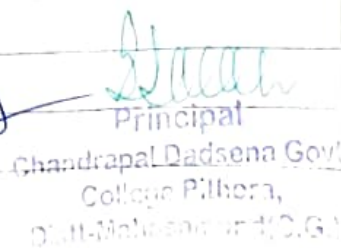 Principal
Chandrapal Dadsena Govt
College Pithora,
Distt-Mahasamund(C.G.)